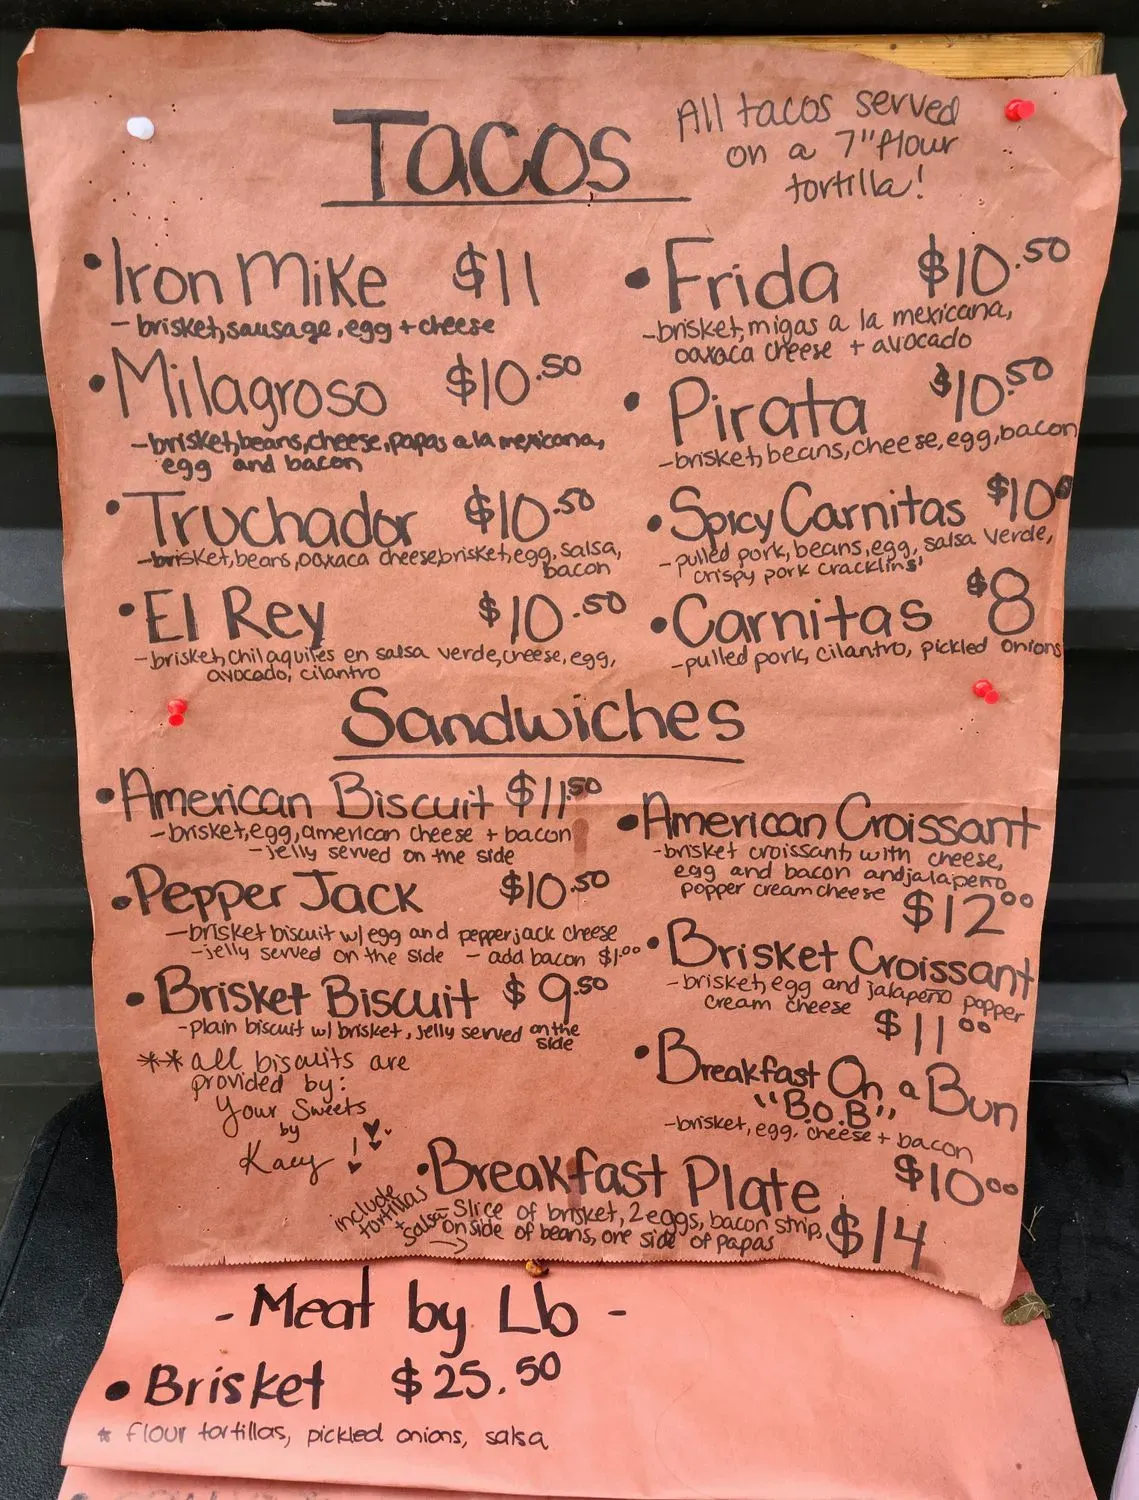 Tacos
All tacos served
on a 7" flour
tortilla!
• Iron Mike $11
- brisket, sausage, egg + cheese
• Milagroso $10.50
- brisket, beans, cheese, papas a la mexicana,
egg and bacon
• Truchador $10.50
- brisket, beans, oaxaca cheese, brisket, egg, salsa,
bacon
• El Rey $10.50
- brisket, chilaquiles en salsa verde, cheese, egg,
avocado, cilantro
• Frida $10.50
- brisket, migas a la mexicana,
oaxaca cheese + avocado
• Pirata $10.50
- brisket, beans, cheese, egg, bacon
• Spicy Carnitas $10
- pulled pork, beans, egg, salsa verde,
crispy pork cracklins'
• Carnitas $8
- pulled pork, cilantro, pickled onions
Sandwiches
• American Biscuit $11.50
- brisket, egg, american cheese + bacon
- jelly served on the side
• Pepper Jack $10.50
- brisket biscuit w/ egg and pepperjack cheese
- jelly served on the side - add bacon $1.00
• Brisket Biscuit $9.50
- plain biscuit w/ brisket, jelly served on the
side
** all biscuits are
provided by:
Your Sweets
by
Kacy!
• American Croissant
- brisket croissant, with cheese,
egg and bacon and jalapeño
popper cream cheese
$12.00
• Brisket Croissant
- brisket, egg and jalapeño popper
cream cheese
$11.00
• Breakfast On a Bun
"B.O.B"
- brisket, egg, cheese + bacon
$10.00
• Breakfast Plate
- Slice of brisket, 2 eggs, bacon strip,
on side of beans, one side of papas
$14
include
tortillas
+ salsa
- Meat by Lb -
• Brisket $25.50
* flour tortillas, pickled onions, salsa